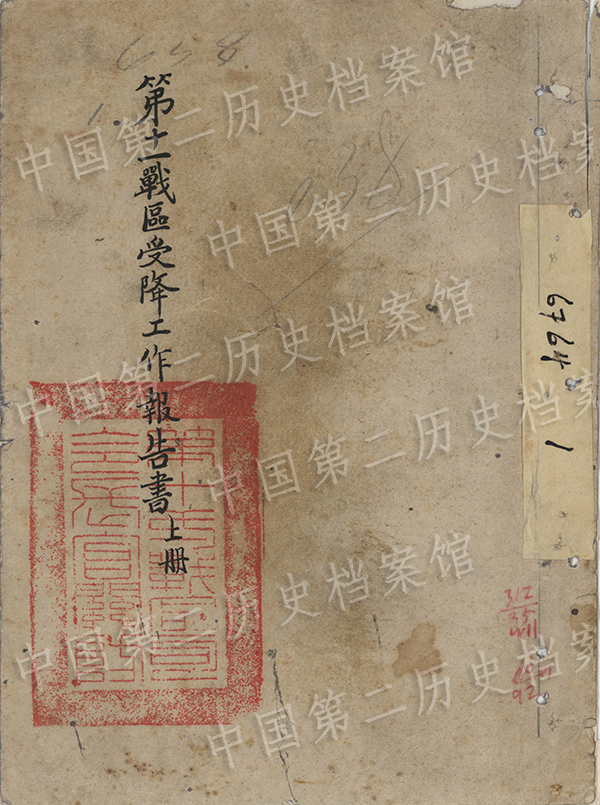 第十一戰區受降工作報告書上册
6764
1
638
638
312
35
中国第二历史档案馆
中国第二历史档案馆
中国第二历史档案馆
中国第二历史档案馆
中国第二历史档案馆
中国第二历史档案馆